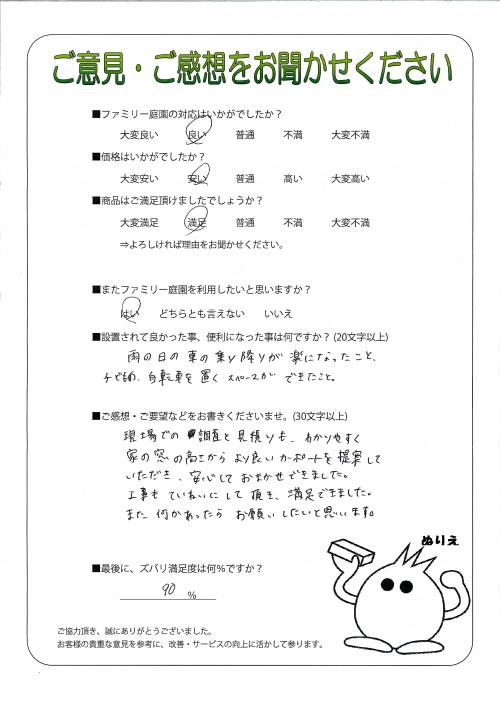 ご意見・ご感想をお聞かせください
■ファミリー庭園の対応はいかがでしたか？
大変良い 良い 普通 不満 大変不満
■価格はいかがでしたか？
大変安い 安い 普通 高い 大変高い
■商品はご満足頂けましたでしょうか？
大変満足 満足 普通 不満 大変不満
⇒よろしければ理由をお聞かせください。
■またファミリー庭園を利用したいと思いますか？
はい どちらとも言えない いいえ
■設置されて良かった事、便利になった事は何ですか？(20文字以上)
雨の日の車の乗り降りが楽になったこと、
子ども用、自転車を置くスペースができたこと。
■ご感想・ご要望などをお書きくださいませ。(30文字以上)
現場での調査と見積りも、わかりやすく
家の窓の高さからより良いカーポートを提案して
いただき、安心しておまかせできました。
工事もていねいにして頂き、満足できました。
また何かあったらお願いしたいと思います。
ぬりえ
■最後に、ズバリ満足度は何％ですか？
90 ％
ご協力頂き、誠にありがとうございました。
お客様の貴重な意見を参考に、改善・サービスの向上に活かして参ります。